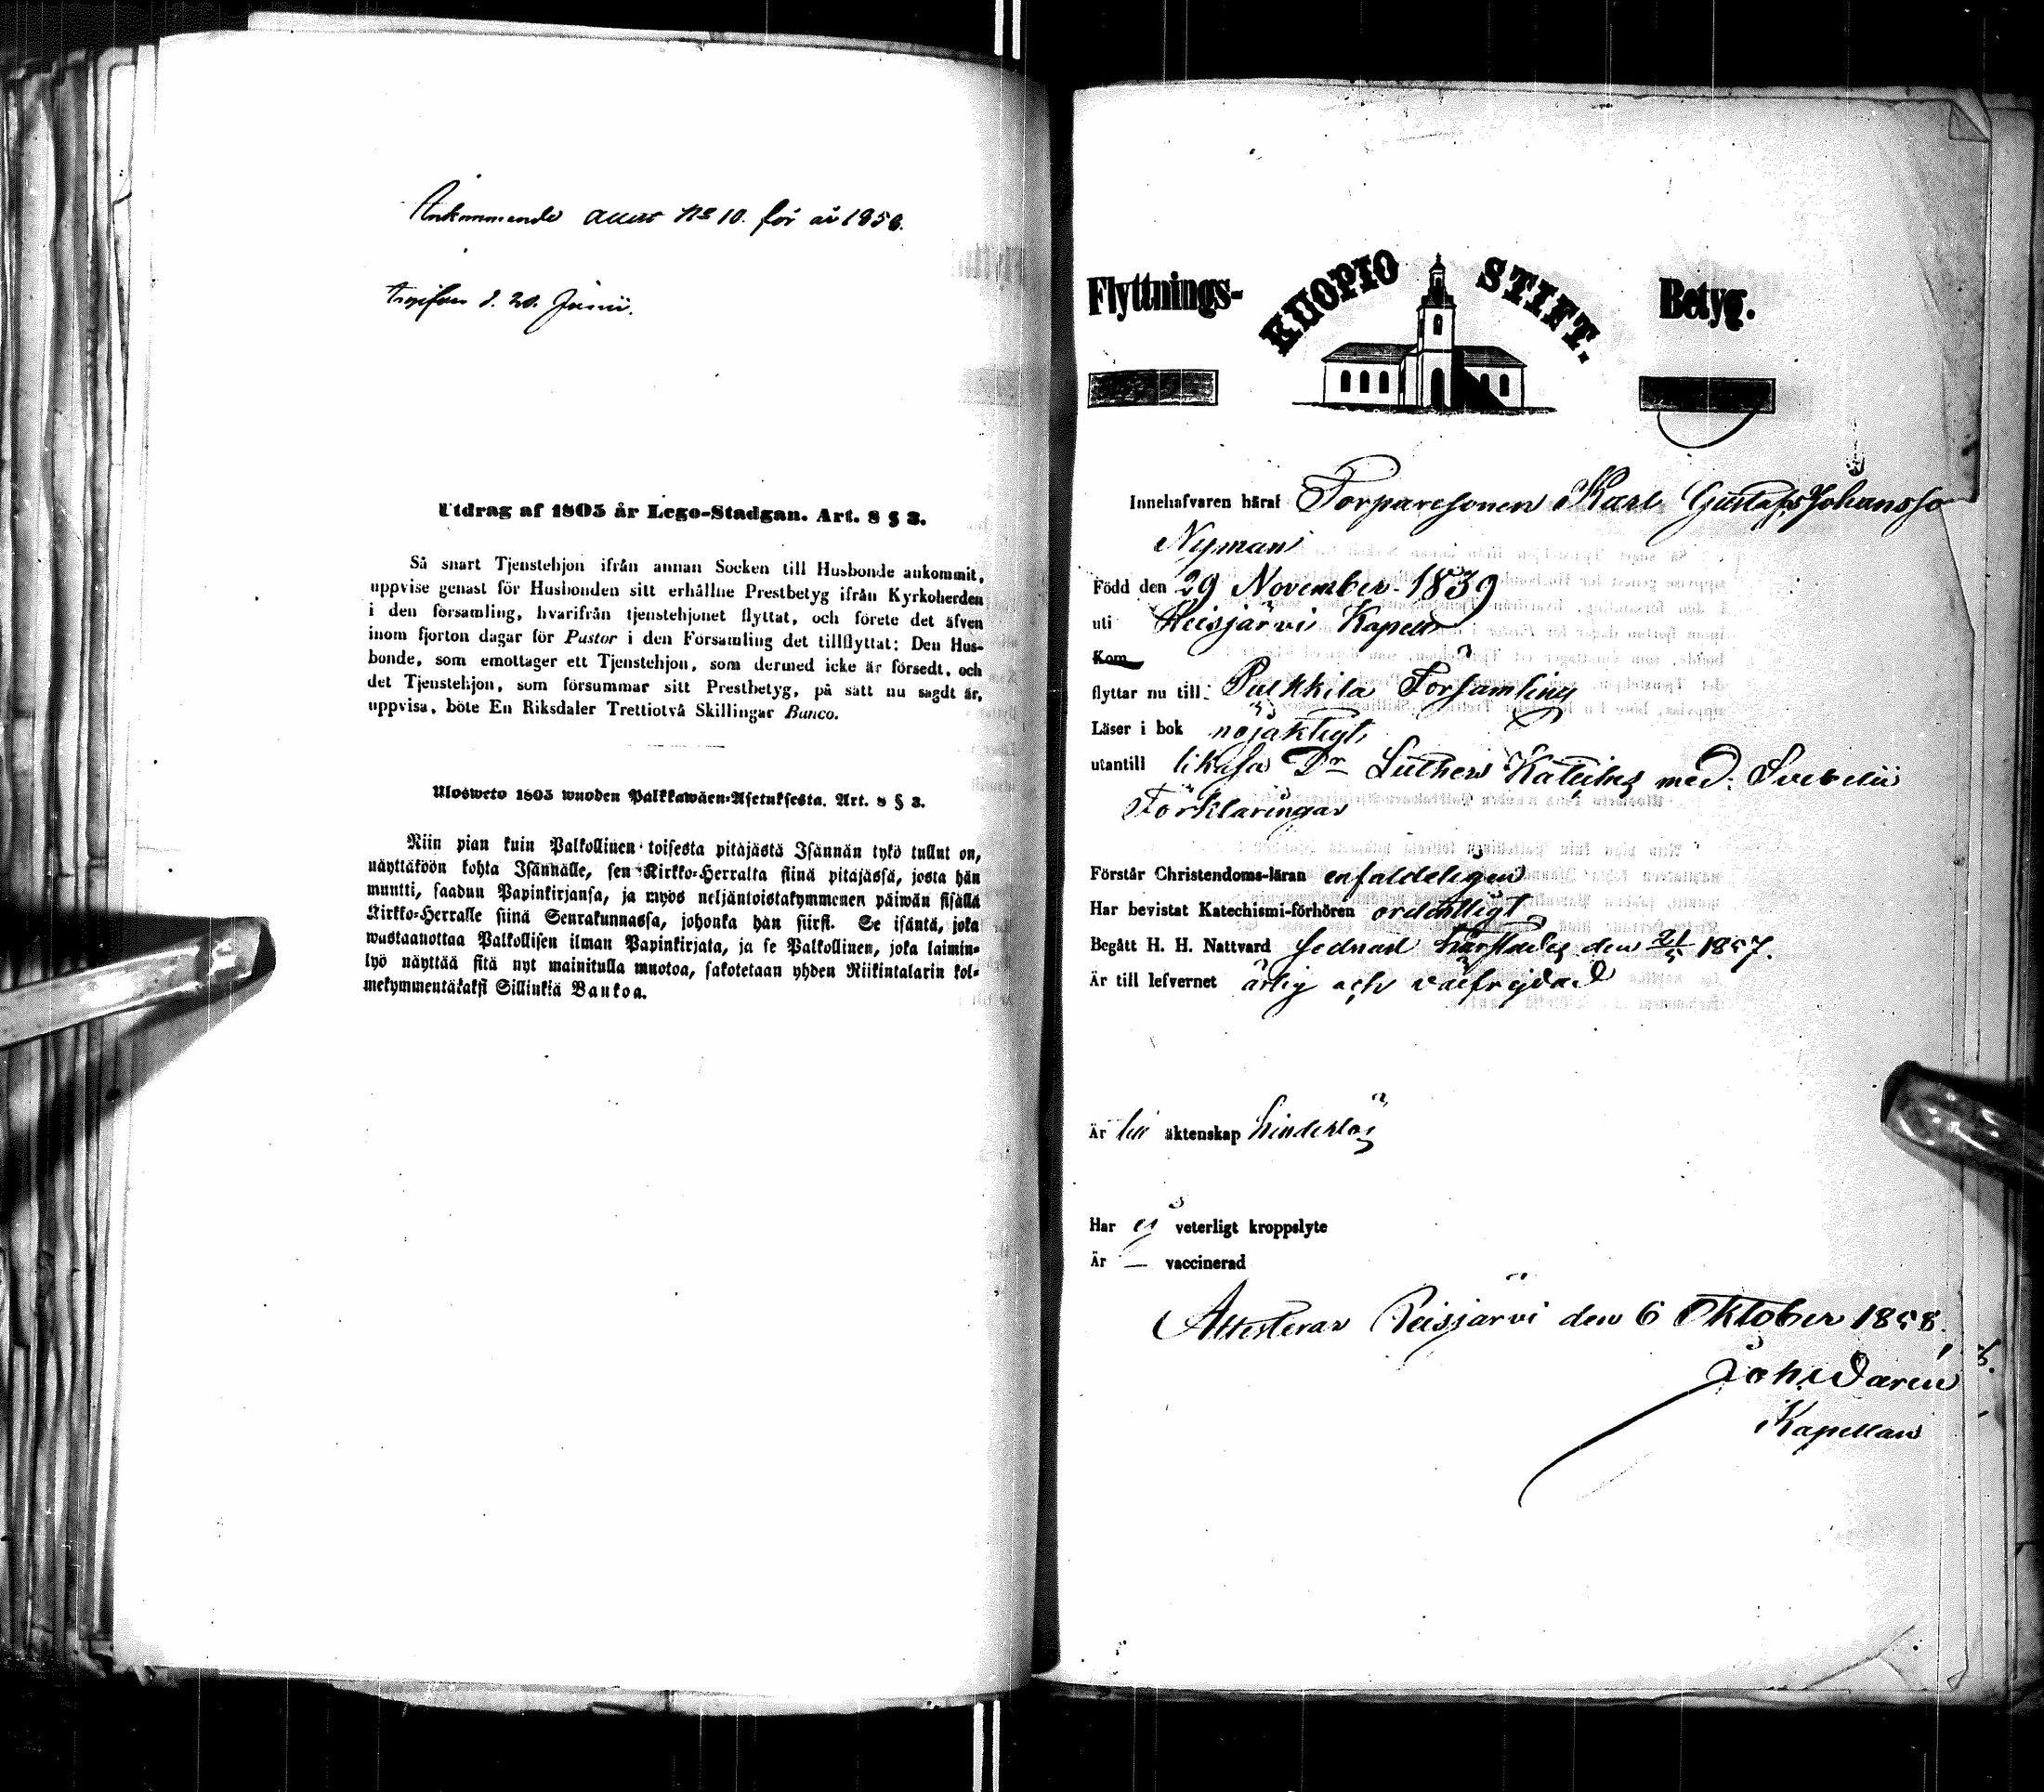 Ankommande attest No 10. för år 1858.
d. 20. Junii.
Utdrag af 1805 år Lego-Stadgan. Art. 8 § 3.
Så snart Tjenstehjon ifrån annan Socken till Husbonde ankommit,
uppvise genast för Husbonden sitt erhållne Prestbetyg ifrån Kyrkoherden
i den församling, hvarifrån tjenstehjonet flyttat, och förete det äfven
inom fjorton dagar för Pastor i den Församling det tillflyttat; Den Hus-
bonde, som emottager ett Tjenstehjon, som dermed icke är försedt, och
det Tjenstehjon, som försummar sitt Prestbetyg, på sätt nu sagdt är,
uppvisa, böte En Riksdaler Trettiotvå Skillingar Banco.
Ulosweto 1805 wuoden Palkkawäen-Asetuksesta. Art. 8 § 3.
Niin pian kuin Palkollinen toisesta pitäjästä Isännän tykö tullut on,
näyttäköön kohta Isännälle, sen Kirkko-Herralta siinä pitäjässä, josta hän
muutti, saadun Papinkirjansa, ja myös neljäntoistakymmenen päiwän sisällä
Kirkko-Herralle siinä Seurakunnassa, johonka hän siirsi. Se isäntä, joka
wastaanottaa Palkollisen ilman Papinkirjata, ja se Palkollinen, joka laimin-
lyö näyttää sitä nyt mainitulla muotoa, sakotetaan yhden Riikintalarin kol-
mekymmentäkaksi Sillinkiä Bankoa.
Flyttnings- KUOPIO STIFT. Betyg.
Innehafvaren häraf Torparesonen Karl Gustaf Johansso
Nyman
Född den 29 November 1839
uti Reisjärvi Kapell
Kom
flyttar nu till Pulkkila Församling
Läser i bok nöjaktigt
utantill likaså Dr Luthers Kateches med Svebelii
Förklaringar
Förstår Christendoms-läran enfaldeligen
Har bevistat Katechismi-förhören ordentligt
Begått H. H. Nattvard sednast härstädes den 21/5 1857.
Är till lefvernet ärlig och välfrejdad
Är till äktenskap hinderlös
Har ej veterligt kroppslyte
Är — vaccinerad
Attesterar Reisjärvi den 6 Oktober 1858.
Joh. Daren
Kapellan